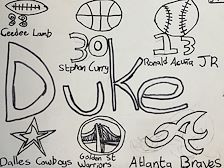 33
Ceedee Lamb
30
Stephan Curry
13
Ronald Acuña JR
Duke
Dalles Cowboys
Golden St
Warriors
A
Atlanta Braves